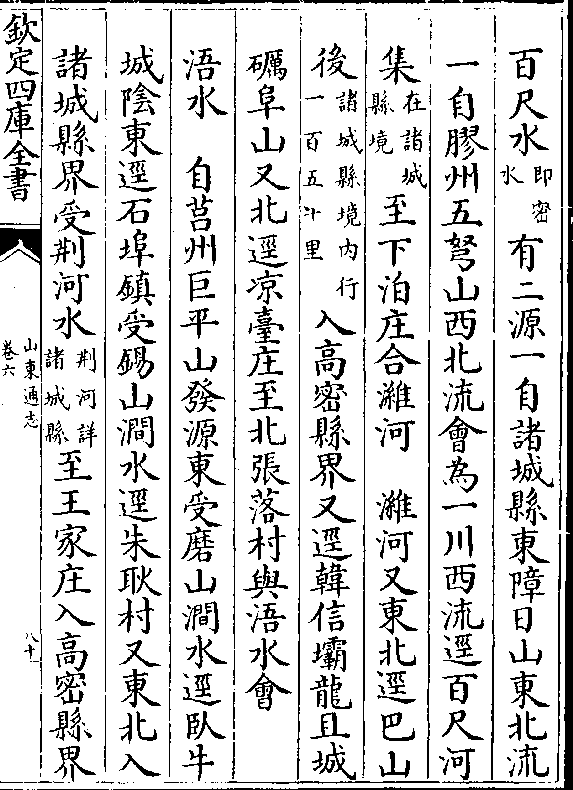 百尺水即密水有二源一自諸城縣東障日山東北流
一自膠州五弩山西北流會為一川西流逕百尺河
集在諸城縣境至下泊庄合濰河　濰河又東北逕巴山
後諸城縣境內行一百五十里入高密縣界又逕韓信壩龍且城
礪阜山又北逕凉臺庄至北張落村與浯水會
浯水　自莒州巨平山發源東受磨山澗水逕臥牛
城陰東逕石埠鎮受錫山澗水逕朱耿村又東北入
諸城縣界受荆河水荆河詳諸城縣至王家庄入高密縣界
欽定四庫全書
山東通志
卷六
八十